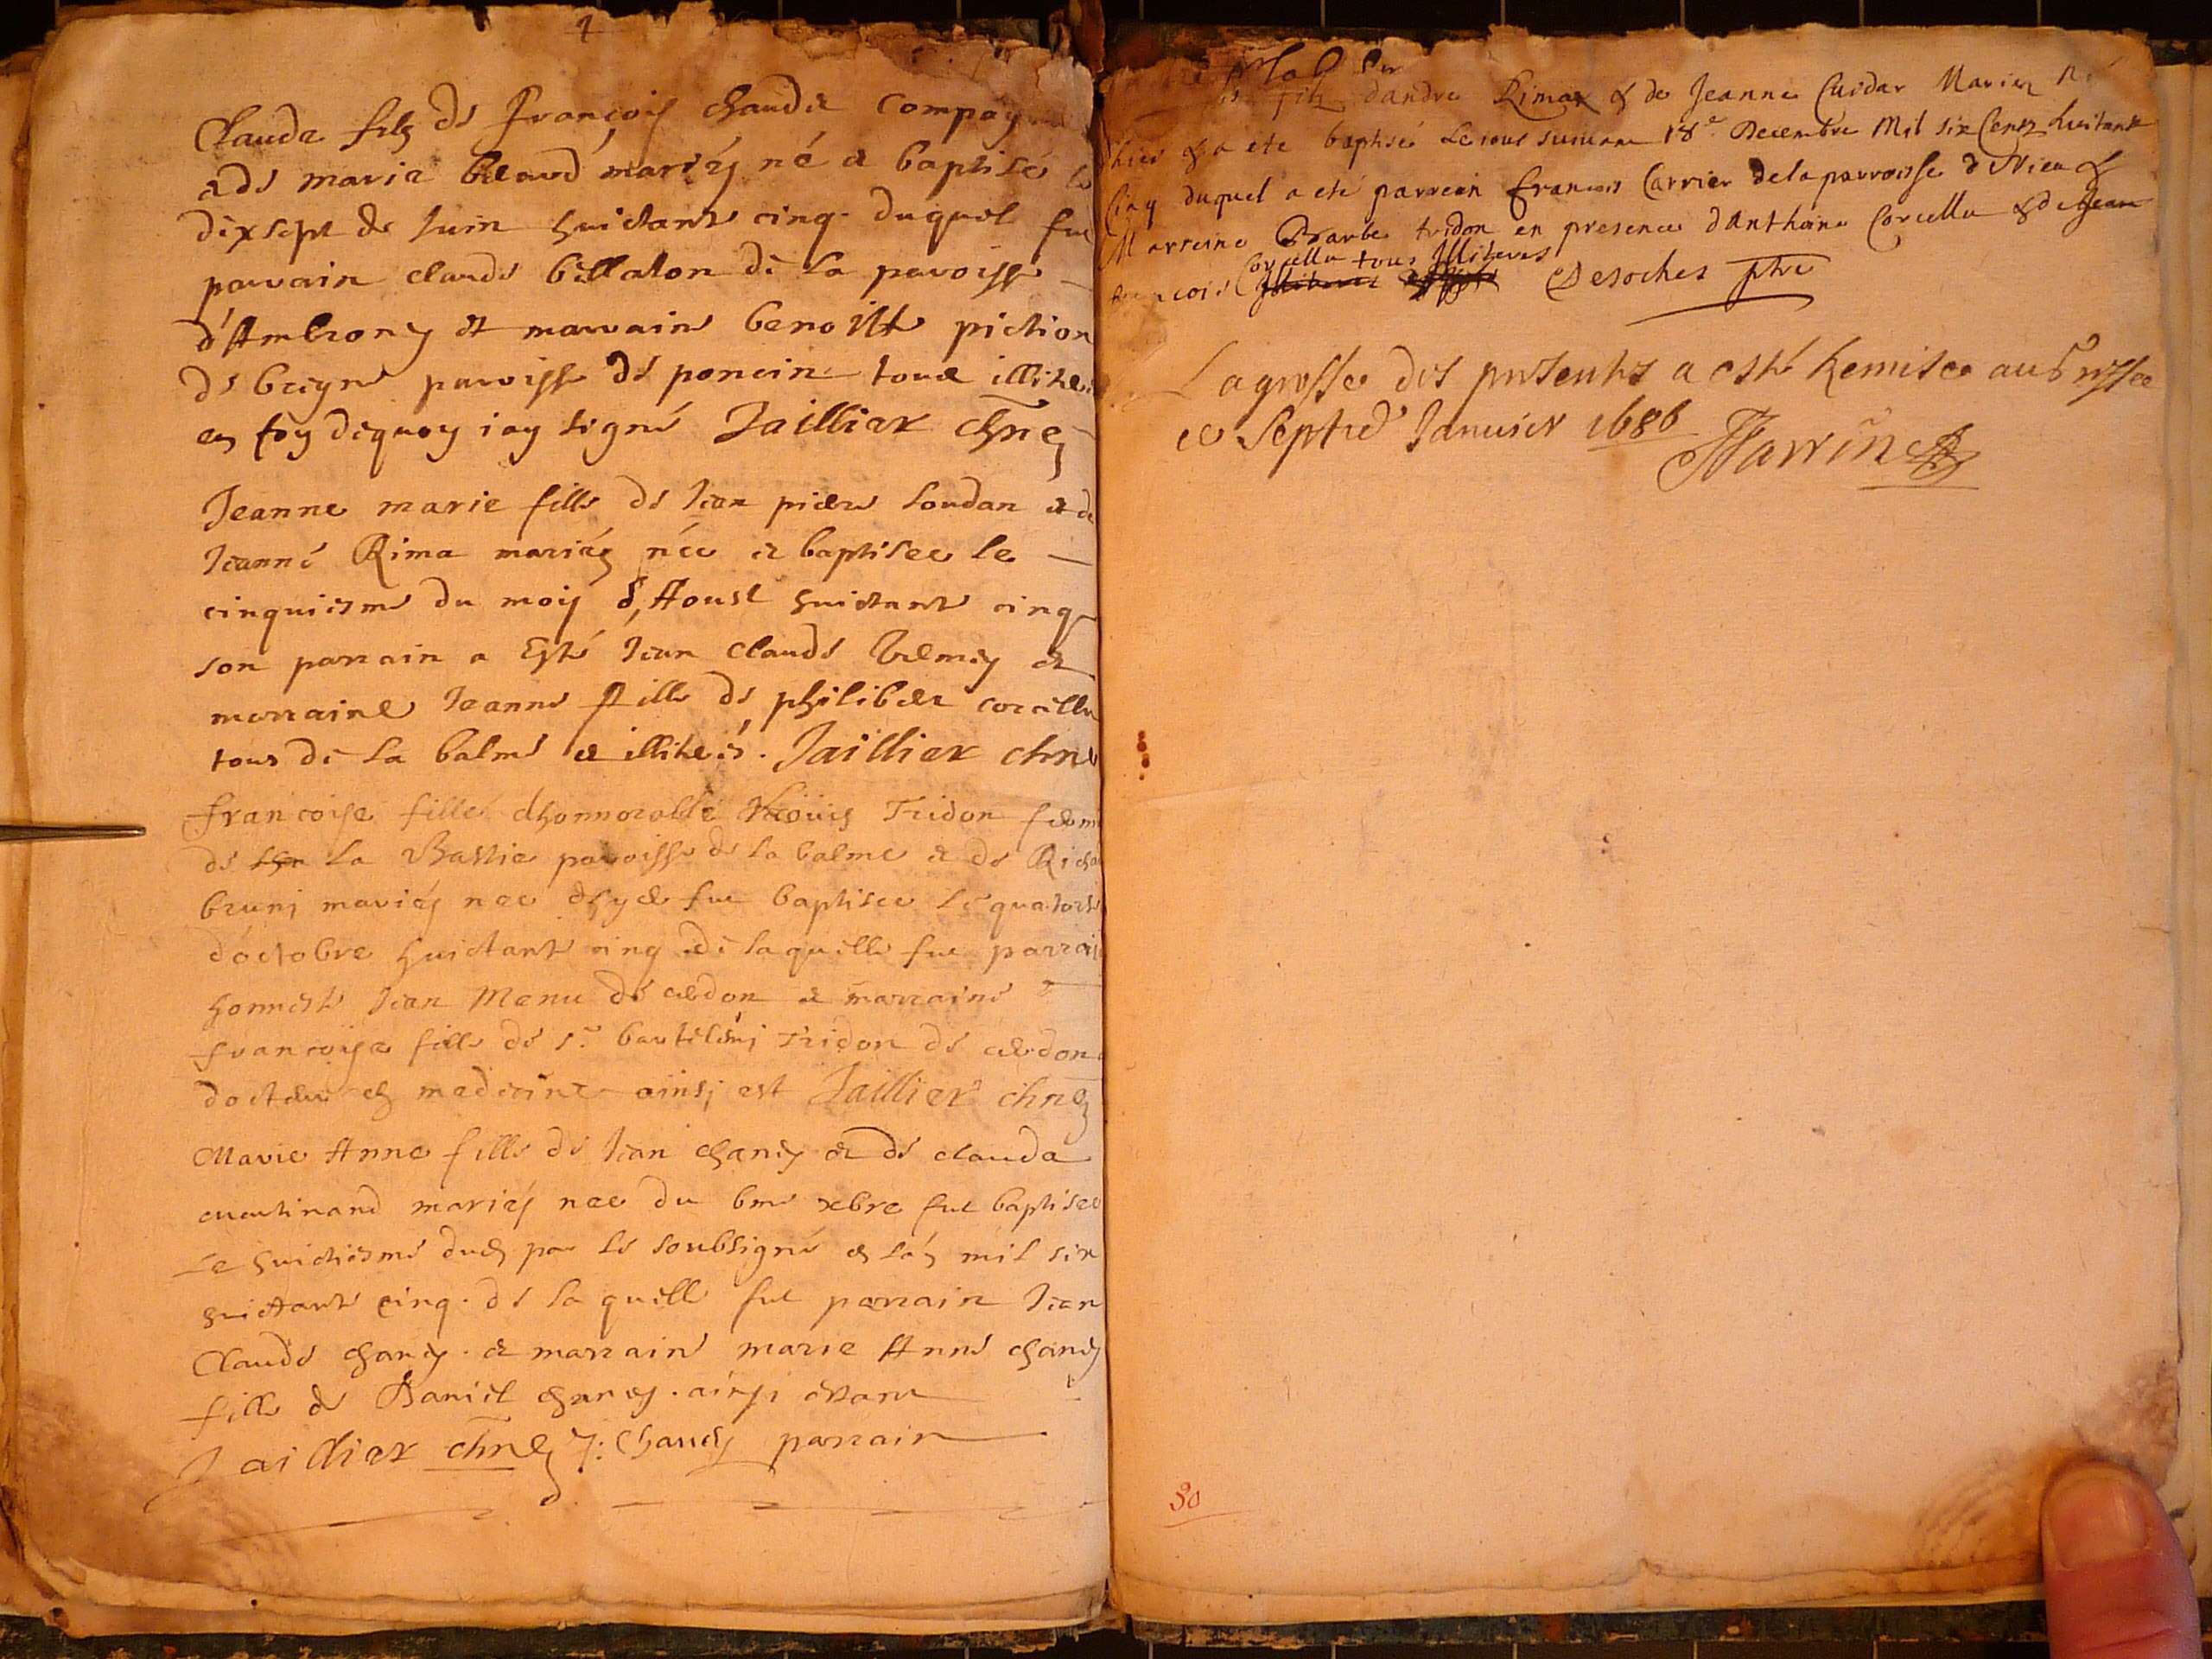 Claude fils de françois chaude compay
& de marie beaud mariés né & baptisé le
dixsept de Juin huictante cinq. duquel fut
parrain claude billaton de la paroisse
d'Ambrony et marraine benoitte piction
de breyne paroisse de poncin tous illiterés
en foy dequoy i'ay signé Jaillier chne
Jeanne marie fille de Jean pierre soudan & de
Jeanne Rima mariés née & baptisee le
cinquiesme du mois d'Aoust huictante cinq
son parrain a esté Jean claude
marraine Jeanne fille de philiber corcelle
tous de la balme & illiterés. Jaillier chne
francoise fille dhonnorable Tridon
de la Bastie paroisse de la balme & de
bruni mariés nee & fut baptisee le quatorse
d'octobre huictante cinq de laquelle fut parrain
honneste Jean Menu de cerdon & marraine
francoise fille de sr. bartelemi Tridon de cerdon
docteur en medecine ainsi est Jaillier chne
Marie Anne fille de Jean chaney & de clauda
mariés nee du xbre fut baptisee
le huictiesme dud par le soubsigné & l'an mil six
huictante cinq. de la quelle fut parrain Jean
Claude chaney. & marraine marie Anne chaney
fille de Daniel chaney. ainsi estant
Jaillier chne J: Chaney parrain
fils dandre Rimax & de Jeanne Cuidar Mariez
hier & a ete baptisé le jour suivant 18e. Decembre Mil six Cents huitante
Cinq duquel a eté parrein francois Carrier de la parroisse d
Marreine Barbe tridon en presence dAnthoine Corcelle & de Jean
francois Corcelle tous Illiteres Desroches ptre
La grosse des presentes a esté Remise au Greffe
ce Sept.e Januier 1686 Marrin
30